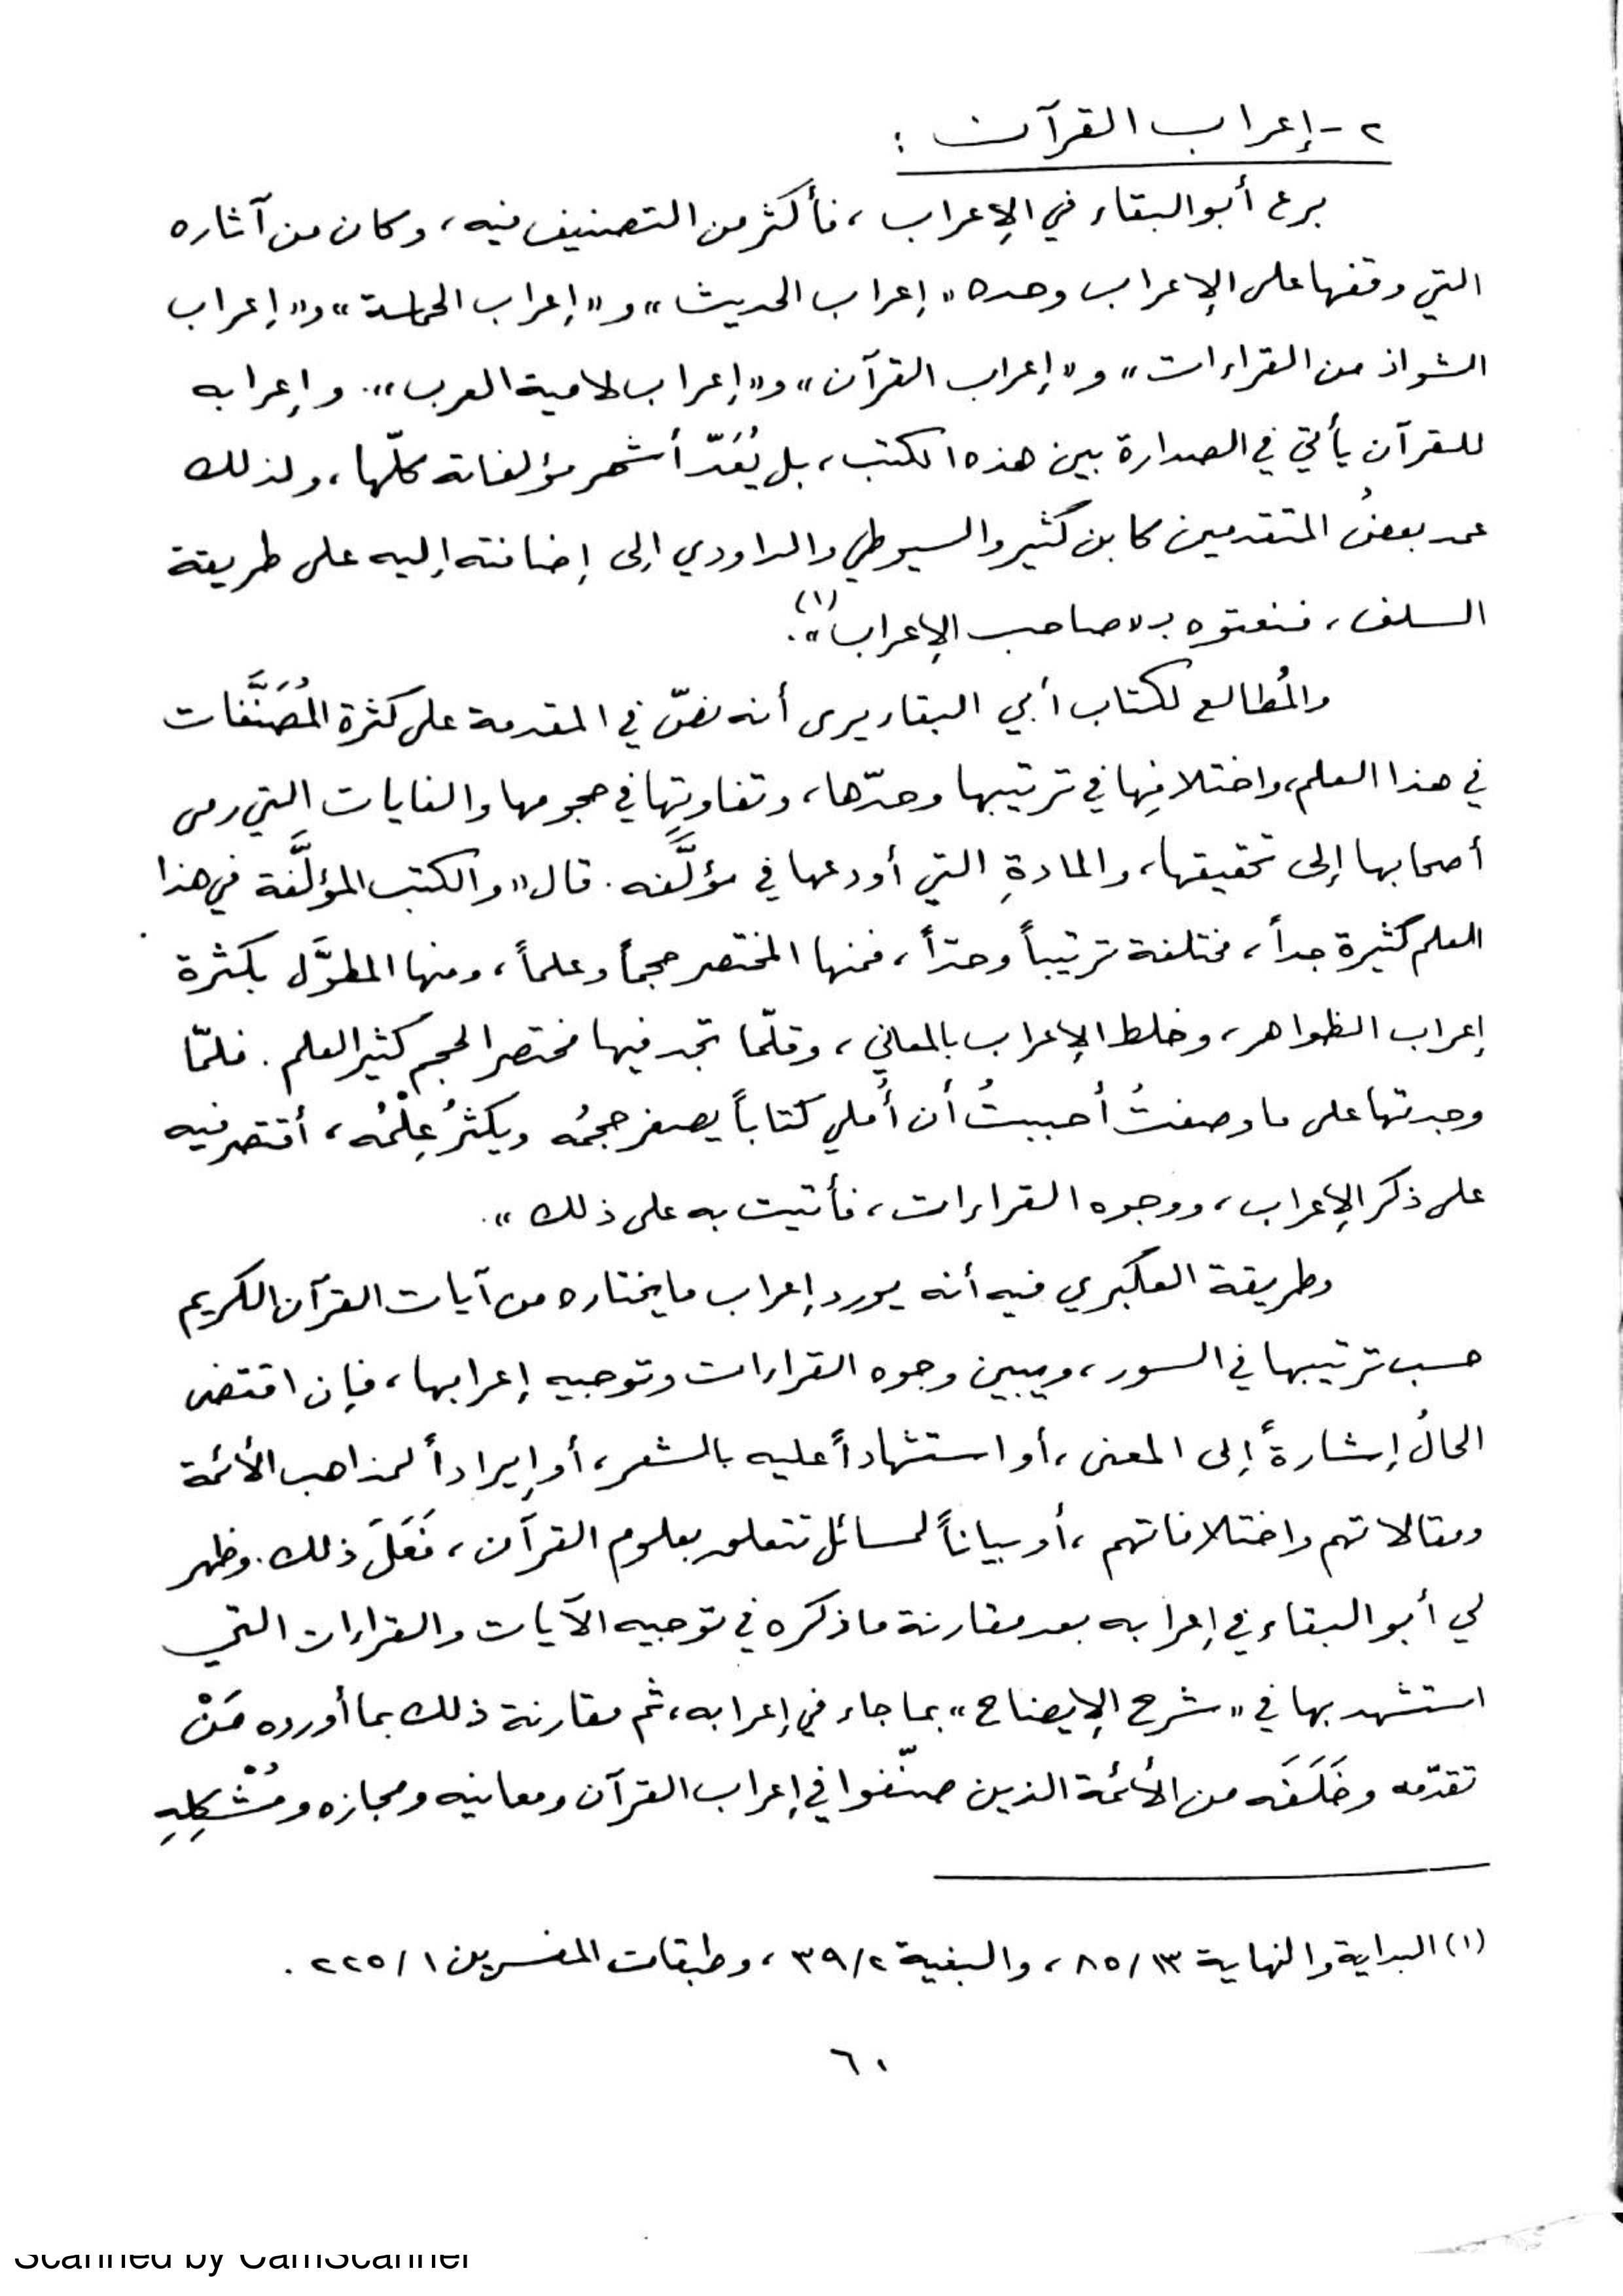 ٢- إعراب القرآن :
برع أبو البقاء في الإعراب ، فأكثر من التصنيف فيه ، وكان من آثاره
التي وقفها على الإعراب وحده « إعراب الحديث » و « إعراب الحماسة » و « إعراب
الشواذ من القراءات » و « إعراب القرآن » و « إعراب لامية العرب » . وإعرابه
للقرآن يأتي في الصدارة بين هذه الكتب ، بل يُعَدّ أشهر مؤلفاته كلّها ، ولذلك
عمد بعضُ المتقدمين كابن كثير والسيوطي والداودي إلى إضافته إليه على طريقة
السلف ، فنعتوه بـ « صاحب الإعراب » (١) .
والمُطالع لكتاب أبي البقاء يرى أنه نصّ في المقدمة على كثرة المُصَنَّفات
في هذا العلم ، واختلافِها في ترتيبها وحدّها ، وتفاوتِها في حجومها والغايات التي رمى
أصحابها إلى تحقيقها ، والمادةِ التي أودعها في مؤلَّفه . قال « والكتب المؤلَّفة في هذا
العلم كثيرة جداً ، مختلفة ترتيباً وحدّاً ، فمنها المختصر حجماً وعلماً ، ومنها المطوَّل بكثرة
إعراب الظواهر ، وخلط الإعراب بالمعاني ، وقلّما تجد فيها مختصر الحجم كثير العلم . فلمّا
وجدتها على ما وصفتُ أحببتُ أن أُملي كتاباً يصغر حجمُه ويكثرُ عِلْمُه ، أقتصر فيه
على ذكر الإعراب ، ووجوه القراءات ، فأتيت به على ذلك » .
وطريقة العكبري فيه أنه يورد إعراب ما يختاره من آيات القرآن الكريم
حسب ترتيبها في السور ، ويبين وجوه القراءات وتوجيه إعرابها ، فإن اقتضى
الحالُ إشارةً إلى المعنى ، أو استشهاداً عليه بالشعر ، أو إيراداً لمذاهب الأئمة
ومقالاتهم واختلافاتهم ، أو بياناً لمسائل تتعلق بعلوم القرآن ، فَعَلَ ذلك . وظهر
لي أبو البقاء في إعرابه بعد مقارنة ما ذكره في توجيه الآيات والقراءات التي
استشهد بها في « شرح الإيضاح » بما جاء في إعرابه ، ثم مقارنة ذلك بما أورده مَنْ
تقدّمه وخَلَفَه من الأئمة الذين صنّفوا في إعراب القرآن ومعانيه ومجازه ومُشْكِلِهِ
(١) البداية والنهاية ١٣/ ٨٥ ، والبغية ٢/ ٣٩ ، وطبقات المفسرين ١/ ٢٢٥ .
٦٠
Scanned by CamScanner